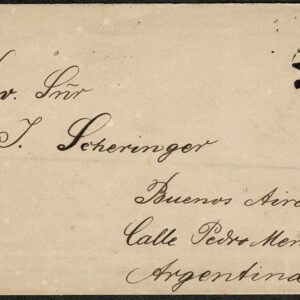 v. Sür
J. Scheringer
Buenos Aire
Calle Pedro Men
Argentina